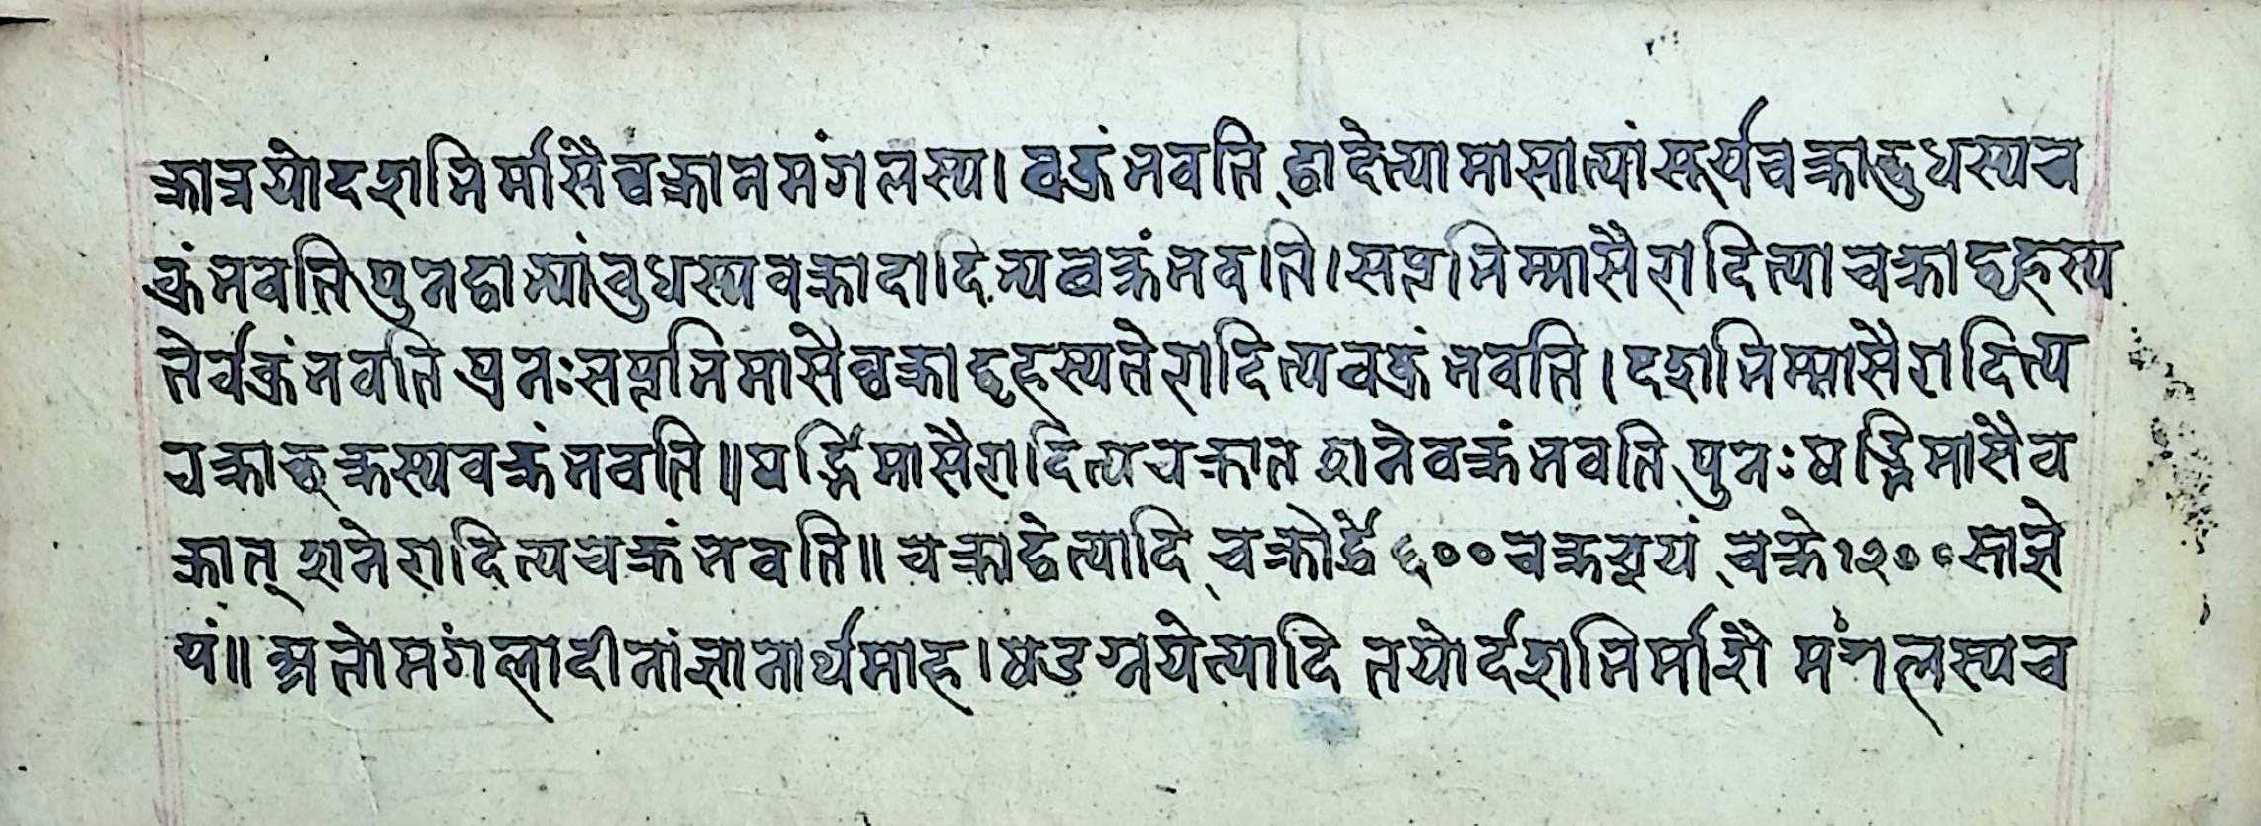 क्रात्रयोदशभिर्मासैश्चक्रानमंगलस्य। वक्रं भवति द्वादेत्यामासाभ्यां सूर्यचक्राद्बुधस्यव
क्रं भवति पुनर्द्वाभ्यां बुधस्यवक्रादादित्यचक्रं भवति। सप्तभिर्म्मासैरादित्याचक्राद्बृहस्प
तेर्वक्रं भवति पुनः सप्तभिमासैश्चक्राद्बृहस्पतेरादित्यचक्रं भवति। दशभिर्म्मासैरादित्य
चक्राछुक्रस्यवक्रं भवति॥ षड्भिमासैरादित्यचक्रात शनेवक्रं भवति पुनः षड्भिमासैव
क्रात् शनेरादित्यचक्रं भवति॥ चक्राद्वेत्यादि चक्रोर्द्धे ६०० चक्रद्वयं चक्रे १२०० साज्ञे
यं॥ अतो मंगलादीनां ज्ञानार्थमाह। षडग्नयेत्यादि तयोर्दशभिर्माशै मंगलस्यच